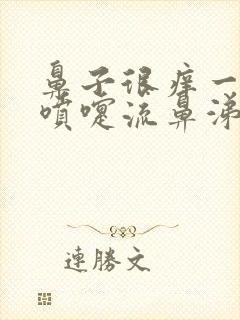 鼻子很痒一
喷嚏流鼻涕
連勝文